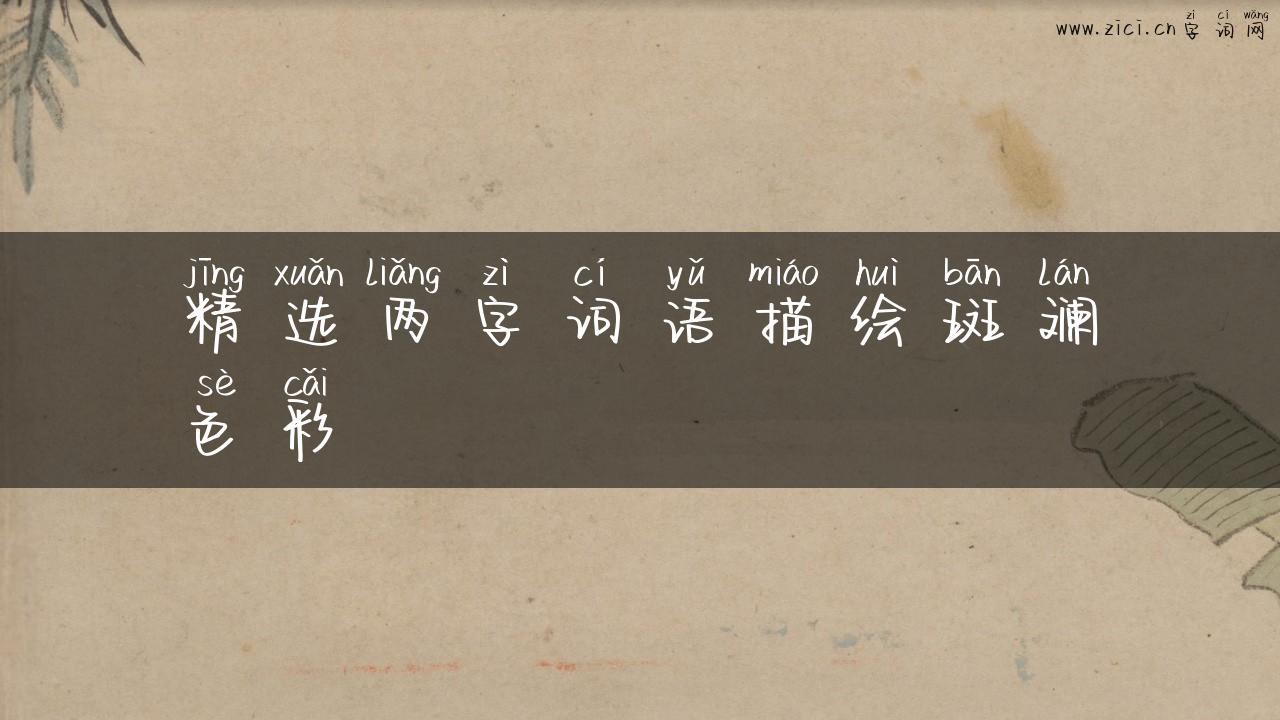 zì cí wǎng
www.zici.cn 字词网
jīng xuǎn liǎng zì cí yǔ miáo huì bān lán
精选两字词语描绘斑斓
sè cǎi
色彩